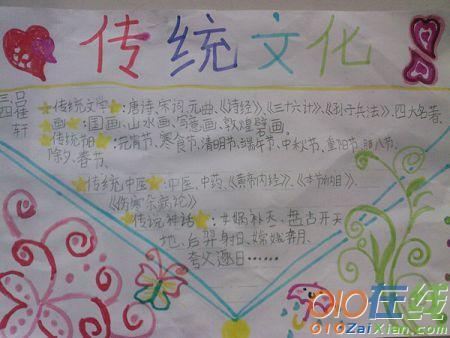 传统文化
三四
吕佳轩
传统文学:唐诗、宋词、元曲、《诗经》、《三十六计》、《孙子兵法》、四大名著.
画:国画、山水画、写意画、敦煌壁画。
传统节日:元宵节、寒食节、清明节、端午节、中秋节、重阳节、腊八节、
除夕、春节。
传统中医:中医、中药、《黄帝内经》、《本草纲目》
《伤寒杂病论》
传说神话:女娲补天、盘古开天
地、后羿射日、嫦娥奔月、
夸父逐日……
010在线
010ZaiXian.com